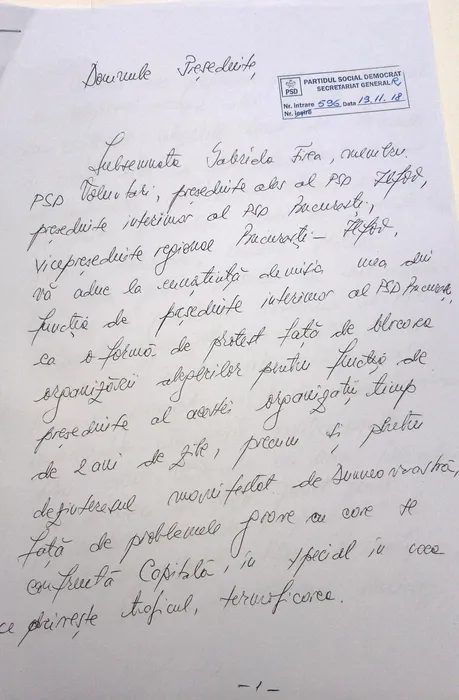 Domnule Președinte,
PARTIDUL SOCIAL DEMOCRAT
SECRETARIAT GENERAL
PSD
Nr. intrare 596 Data 19.11.18
Nr. ieșire
Subsemnata Gabriela Firea, membru
PSD Voluntari, președinte ales al PSD Ilfov,
președinte interimar al PSD București,
vicepreședinte regional București - Ilfov,
vă aduc la cunoștință demisia mea din
funcția de președinte interimar al PSD București,
ca o formă de protest față de blocarea
organizării alegerilor pentru funcția de
președinte al acestei organizații, timp
de 2 ani de zile, precum și pentru
dezinteresul manifestat de Dumneavoastră,
față de problemele grave cu care se
confruntă Capitala, în special în ceea
ce privește traficul, termoficarea.
- 1 -